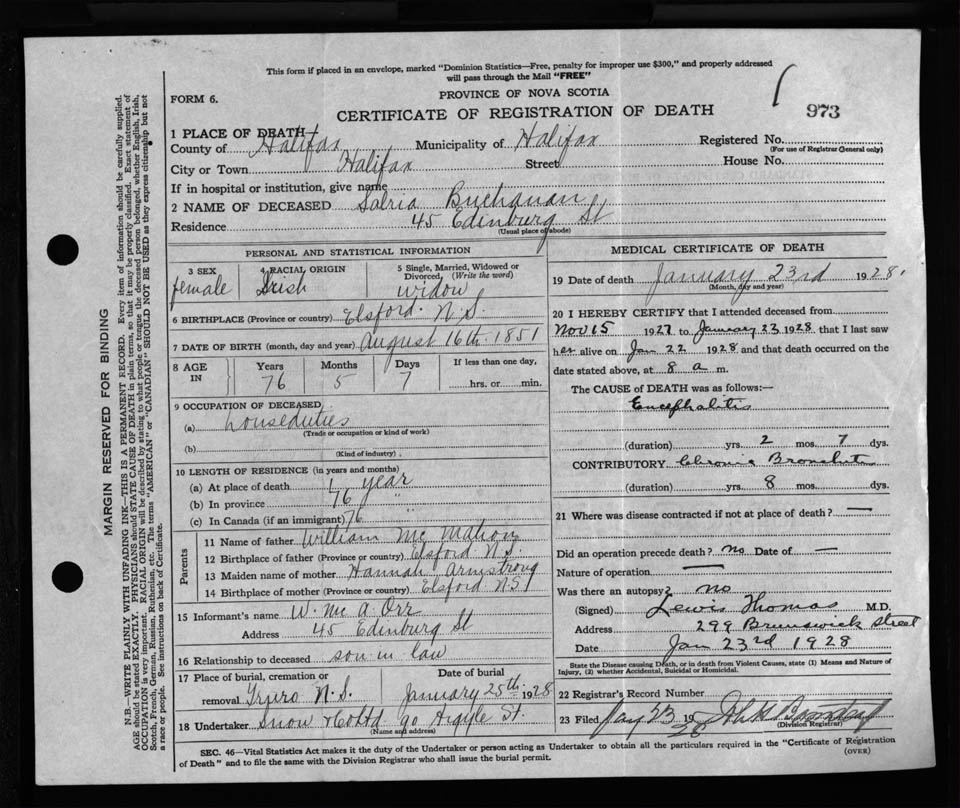 This form if placed in an envelope, marked "Dominion Statistics—Free, penalty for improper use $300," and properly addressed
will pass through the Mail "FREE"
FORM 6.
PROVINCE OF NOVA SCOTIA
CERTIFICATE OF REGISTRATION OF DEATH
973
1 PLACE OF DEATH
County of Halifax Municipality of Halifax Registered No.
(For use of Registrar General only)
City or Town Halifax Street House No.
If in hospital or institution, give name
2 NAME OF DECEASED Buchanan
Residence 45 Edinburg St
(Usual place of abode)
PERSONAL AND STATISTICAL INFORMATION
3 SEX female
4 RACIAL ORIGIN Irish
5 Single, Married, Widowed or Divorced, (Write the word) widow
6 BIRTHPLACE (Province or country) Elsford. N.S.
7 DATE OF BIRTH (month, day and year) August 16th. 1851
8 AGE IN Years 76 Months 5 Days 7 If less than one day, hrs. or min.
9 OCCUPATION OF DECEASED
(a) houseduties
(Trade or occupation or kind of work)
(b)
(Kind of industry)
10 LENGTH OF RESIDENCE (in years and months)
(a) At place of death 1 year
(b) In province 76 "
(c) In Canada (if an immigrant) 76
Parents
11 Name of father William Mc Mahon
12 Birthplace of father (Province or country) Elsford N.S.
13 Maiden name of mother Hannah Armstrong
14 Birthplace of mother (Province or country) Elsford N.S
15 Informant's name W. Mc A. Orr
Address 45 Edinburg St
16 Relationship to deceased son-in-law
17 Place of burial, cremation or removal Truro N.S.
Date of burial January 25th. 1928
18 Undertaker Snow & Co Ltd 90 Argyle St.
(Name and address)
MEDICAL CERTIFICATE OF DEATH
19 Date of death January 23rd 1928
(Month, day and year)
20 I HEREBY CERTIFY that I attended deceased from
Nov 15 1927 to January 23 1928 that I last saw
her alive on Jan 22 1928 and that death occurred on the
date stated above, at 8 a m.
The CAUSE OF DEATH was as follows:—
Encephalitis
(duration) yrs. 2 mos. 7 dys.
CONTRIBUTORY Chronic Bronchitis
(duration) yrs. 8 mos. dys.
21 Where was disease contracted if not at place of death? —
Did an operation precede death? no Date of —
Nature of operation —
Was there an autopsy? no
(Signed) Lewis Thomas M.D.
Address 299 Brunswick Street
Date Jan 23rd 1928
State the Disease causing Death, or in death from Violent Causes, state (1) Means and Nature of
Injury, (2) whether Accidental, Suicidal or Homicidal.
22 Registrar's Record Number
23 Filed Jany 23 19 28
(Division Registrar)
SEC. 46—Vital Statistics Act makes it the duty of the Undertaker or person acting as Undertaker to obtain all the particulars required in the "Certificate of Registration
of Death" and to file the same with the Division Registrar who shall issue the burial permit.
(OVER)
MARGIN RESERVED FOR BINDING
N.B.—WRITE PLAINLY WITH UNFADING INK—THIS IS A PERMANENT RECORD. Every item of information should be carefully supplied.
AGE should be stated EXACTLY. PHYSICIANS should STATE CAUSE OF DEATH in plain terms, so that it may be properly classified. Exact statement of
OCCUPATION is very important. RACIAL ORIGIN will be described by stating to what people or tongue the deceased person belonged, whether English, Irish,
Scotch, French, German, Russian, Ruthenian, etc. The terms "AMERICAN" or "CANADIAN" SHOULD NOT BE USED as they express citizenship but not
a race or people. See instructions on back of Certificate.